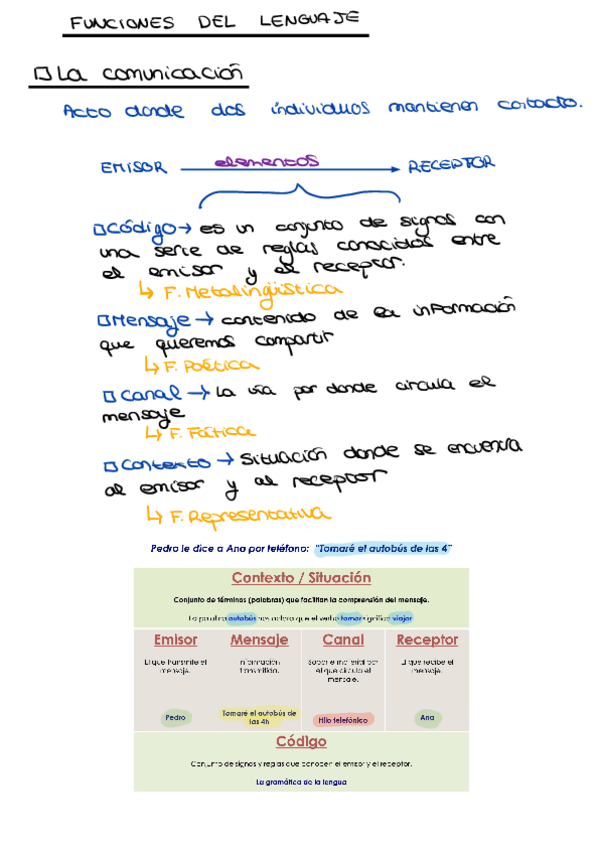 FUNCIONES DEL LENGUAJE
La comunicación
Acto donde dos individuos mantienen contacto.
EMISOR elementos RECEPTOR
Código → es un conjunto de signos con
una serie de reglas conocidas entre
el emisor y el receptor.
↳ F. Metalingüística
Mensaje → contenido de la información
que queremos compartir
↳ F. Poética
Canal → La vía por donde circula el
mensaje
↳ F. Fática
Contexto → Situación donde se encuentra
al emisor y al receptor
↳ F. Representativa
Pedro le dice a Ana por teléfono: "Tomaré el autobús de las 4"
Contexto / Situación
Conjunto de términos (palabras) que facilitan la comprensión del mensaje.
La palabra autobús nos aclara que el verbo tomar significa viajar
Emisor Mensaje Canal Receptor
El que transmite el mensaje.
Información transmitida.
Soporte material por el que circula el mensaje.
El que recibe el mensaje.
Pedro
Tomaré el autobús de las 4h
Hilo telefónico
Ana
Código
Conjunto de signos y reglas que conocen el emisor y el receptor.
La gramática de la lengua